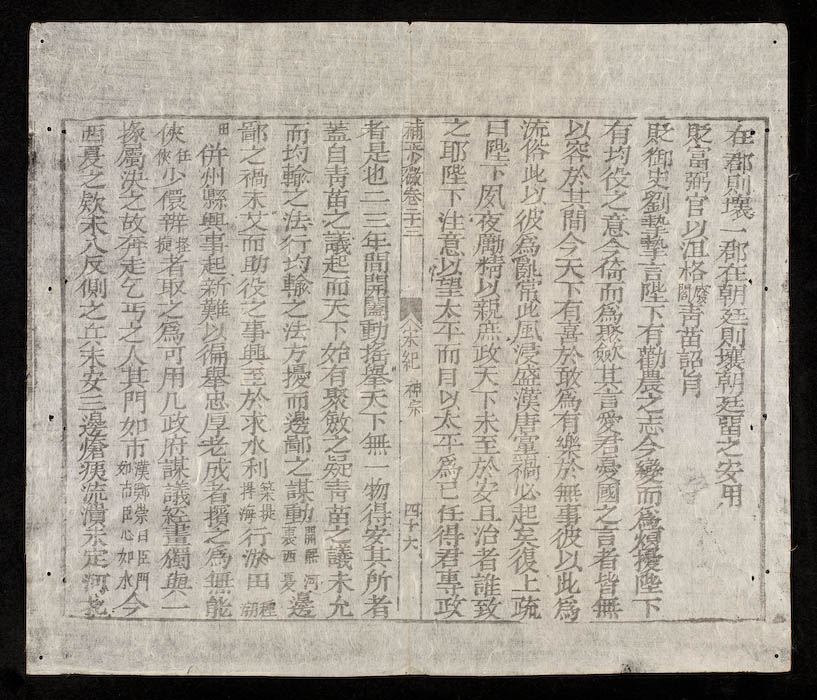 在郡則壞一郡在朝廷則壞朝廷留之安用
貶富弼官以沮格廢閣青苗詔旨
貶御史劉摯摯言陛下有勸農之志今變而爲煩擾陛下
有均役之意今倚而爲聚歛其言愛君憂國之言者皆無
以容於其間今天下有喜於敢爲有樂於無事彼以此爲
流俗此以彼爲亂常此風浸盛漢唐黨禍必起矣復上疏
曰陛下夙夜勵精以親庶政天下未至於安且治者誰致
之耶陛下注意以望太平而自以太平爲己任得君專政
補史略卷二十三 宋紀 神宗 四十六
者是也二三年間開闔動搖舉天下無一物得安其所者
蓋自青苗之議起而天下始有聚斂之疑青苗之議未允
而均輸之法行均輸之法方擾而邊鄙之謀動開熙河裏西夏邊
鄙之禍未艾而助役之事興至於求水利築堤捍海行淤田種湖
田併州縣興事起新難以徧舉忠厚老成者擯之爲無能
俠任俠少儇辨捷者取之爲可用凡政府謀議經畫獨與一
掾屬決之故奔走乞丐之人其門如市漢鄭崇曰臣門如市臣心如水今
西夏之欵未入反側之兵未安三邊瘡痍流潰未定河北